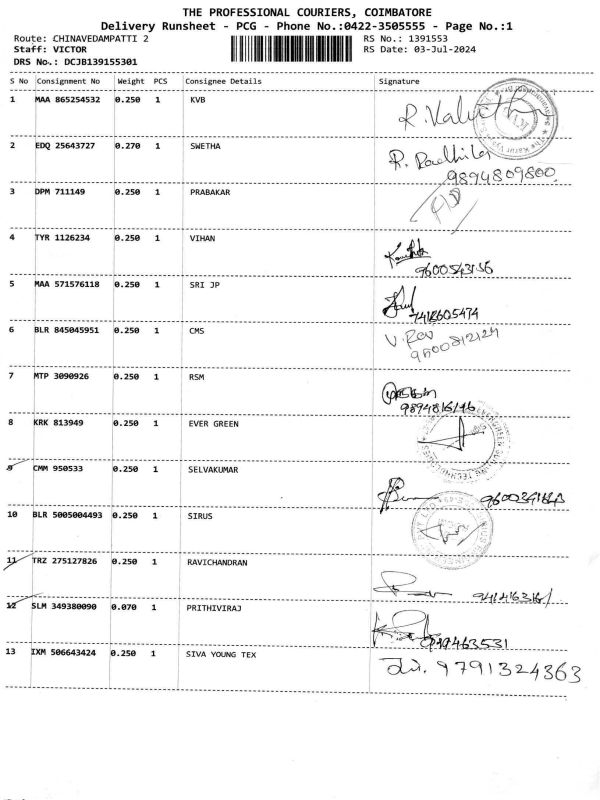 THE PROFESSIONAL COURIERS, COIMBATORE
Delivery Runsheet - PCG - Phone No.:0422-3505555 - Page No.:1
Route: CHINAVEDAMPATTI 2 RS No.: 1391553
Staff: VICTOR RS Date: 03-Jul-2024
DRS No.: DCJB139155301
S No Consignment No Weight PCS Consignee Details Signature
1 MAA 865254532 0.250 1 KVB
2 EDQ 25643727 0.270 1 SWETHA R. Radhika
9894809800
3 DPM 711149 0.250 1 PRABAKAR
4 TYR 1126234 0.250 1 VIHAN
9600543136
5 MAA 571576118 0.250 1 SRI JP
7418605474
6 BLR 845045951 0.250 1 CMS V. Rev
9600812124
7 MTP 3090926 0.250 1 RSM
9894816146
8 KRK 813949 0.250 1 EVER GREEN
9 CMM 950533 0.250 1 SELVAKUMAR
10 BLR 5005004493 0.250 1 SIRUS
11 TRZ 275127826 0.250 1 RAVICHANDRAN
12 SLM 349380090 0.070 1 PRITHIVIRAJ
13 IXM 506643424 0.250 1 SIVA YOUNG TEX 9791324363